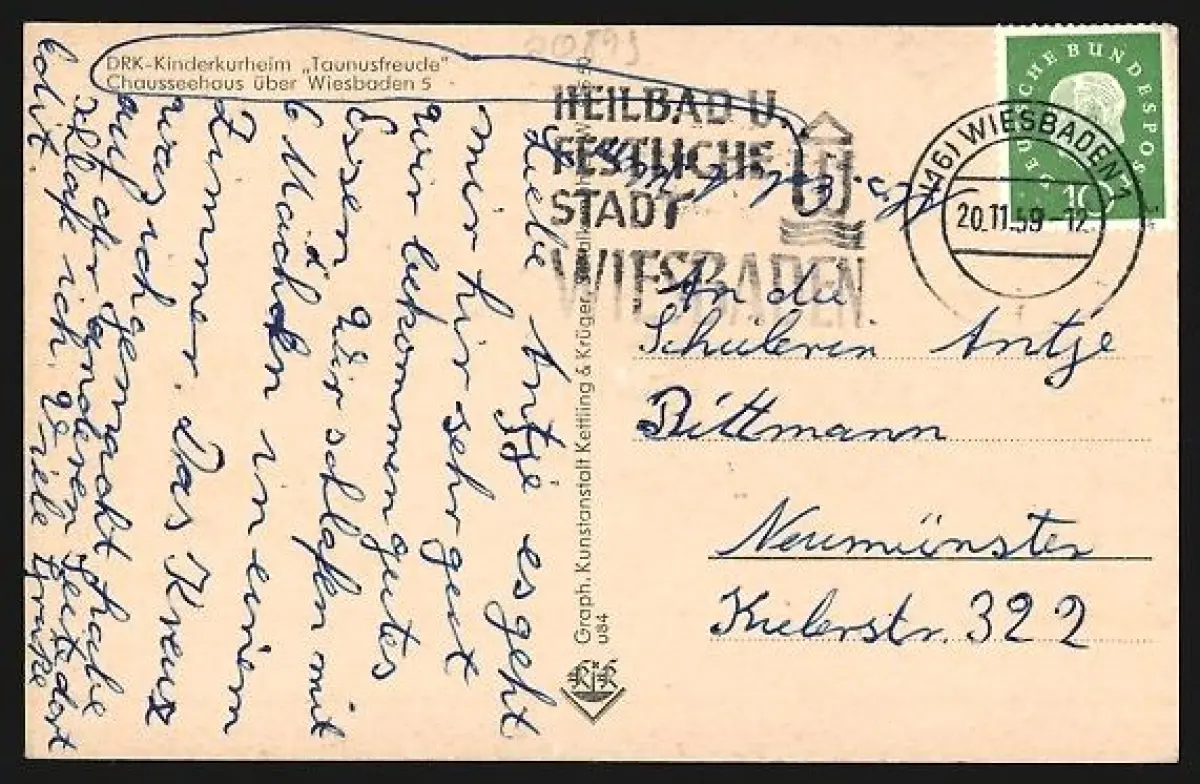 DRK-Kinderkurheim „Taunusfreude"
Chausseehaus über Wiesbaden 5
Liebe Antje es geht
mir hir sehr gut
wir bekommen gutes
Essen. Wir schlafen mit
6 Mädchen in einem
Zimmer. Das Kreuz
was ich gemacht habe
auf der anderen Seite dort
schlafe ich. Viele Grüße
HEILBAD U.
FESTLICHE
STADT
WIESBADEN
DEUTSCHE BUNDESPOST
10
(16) WIESBADEN 1
20.11.59-12
An die
Schülerin Antje
Bittmann
Neumünster
Kielerstr. 322
Graph. Kunstanstalt Kettling & Krüger,
u84
K&K